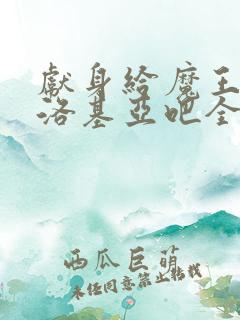 獻身給魔王
洛基亞吧全
西瓜巨萌
未經同意禁止轉載